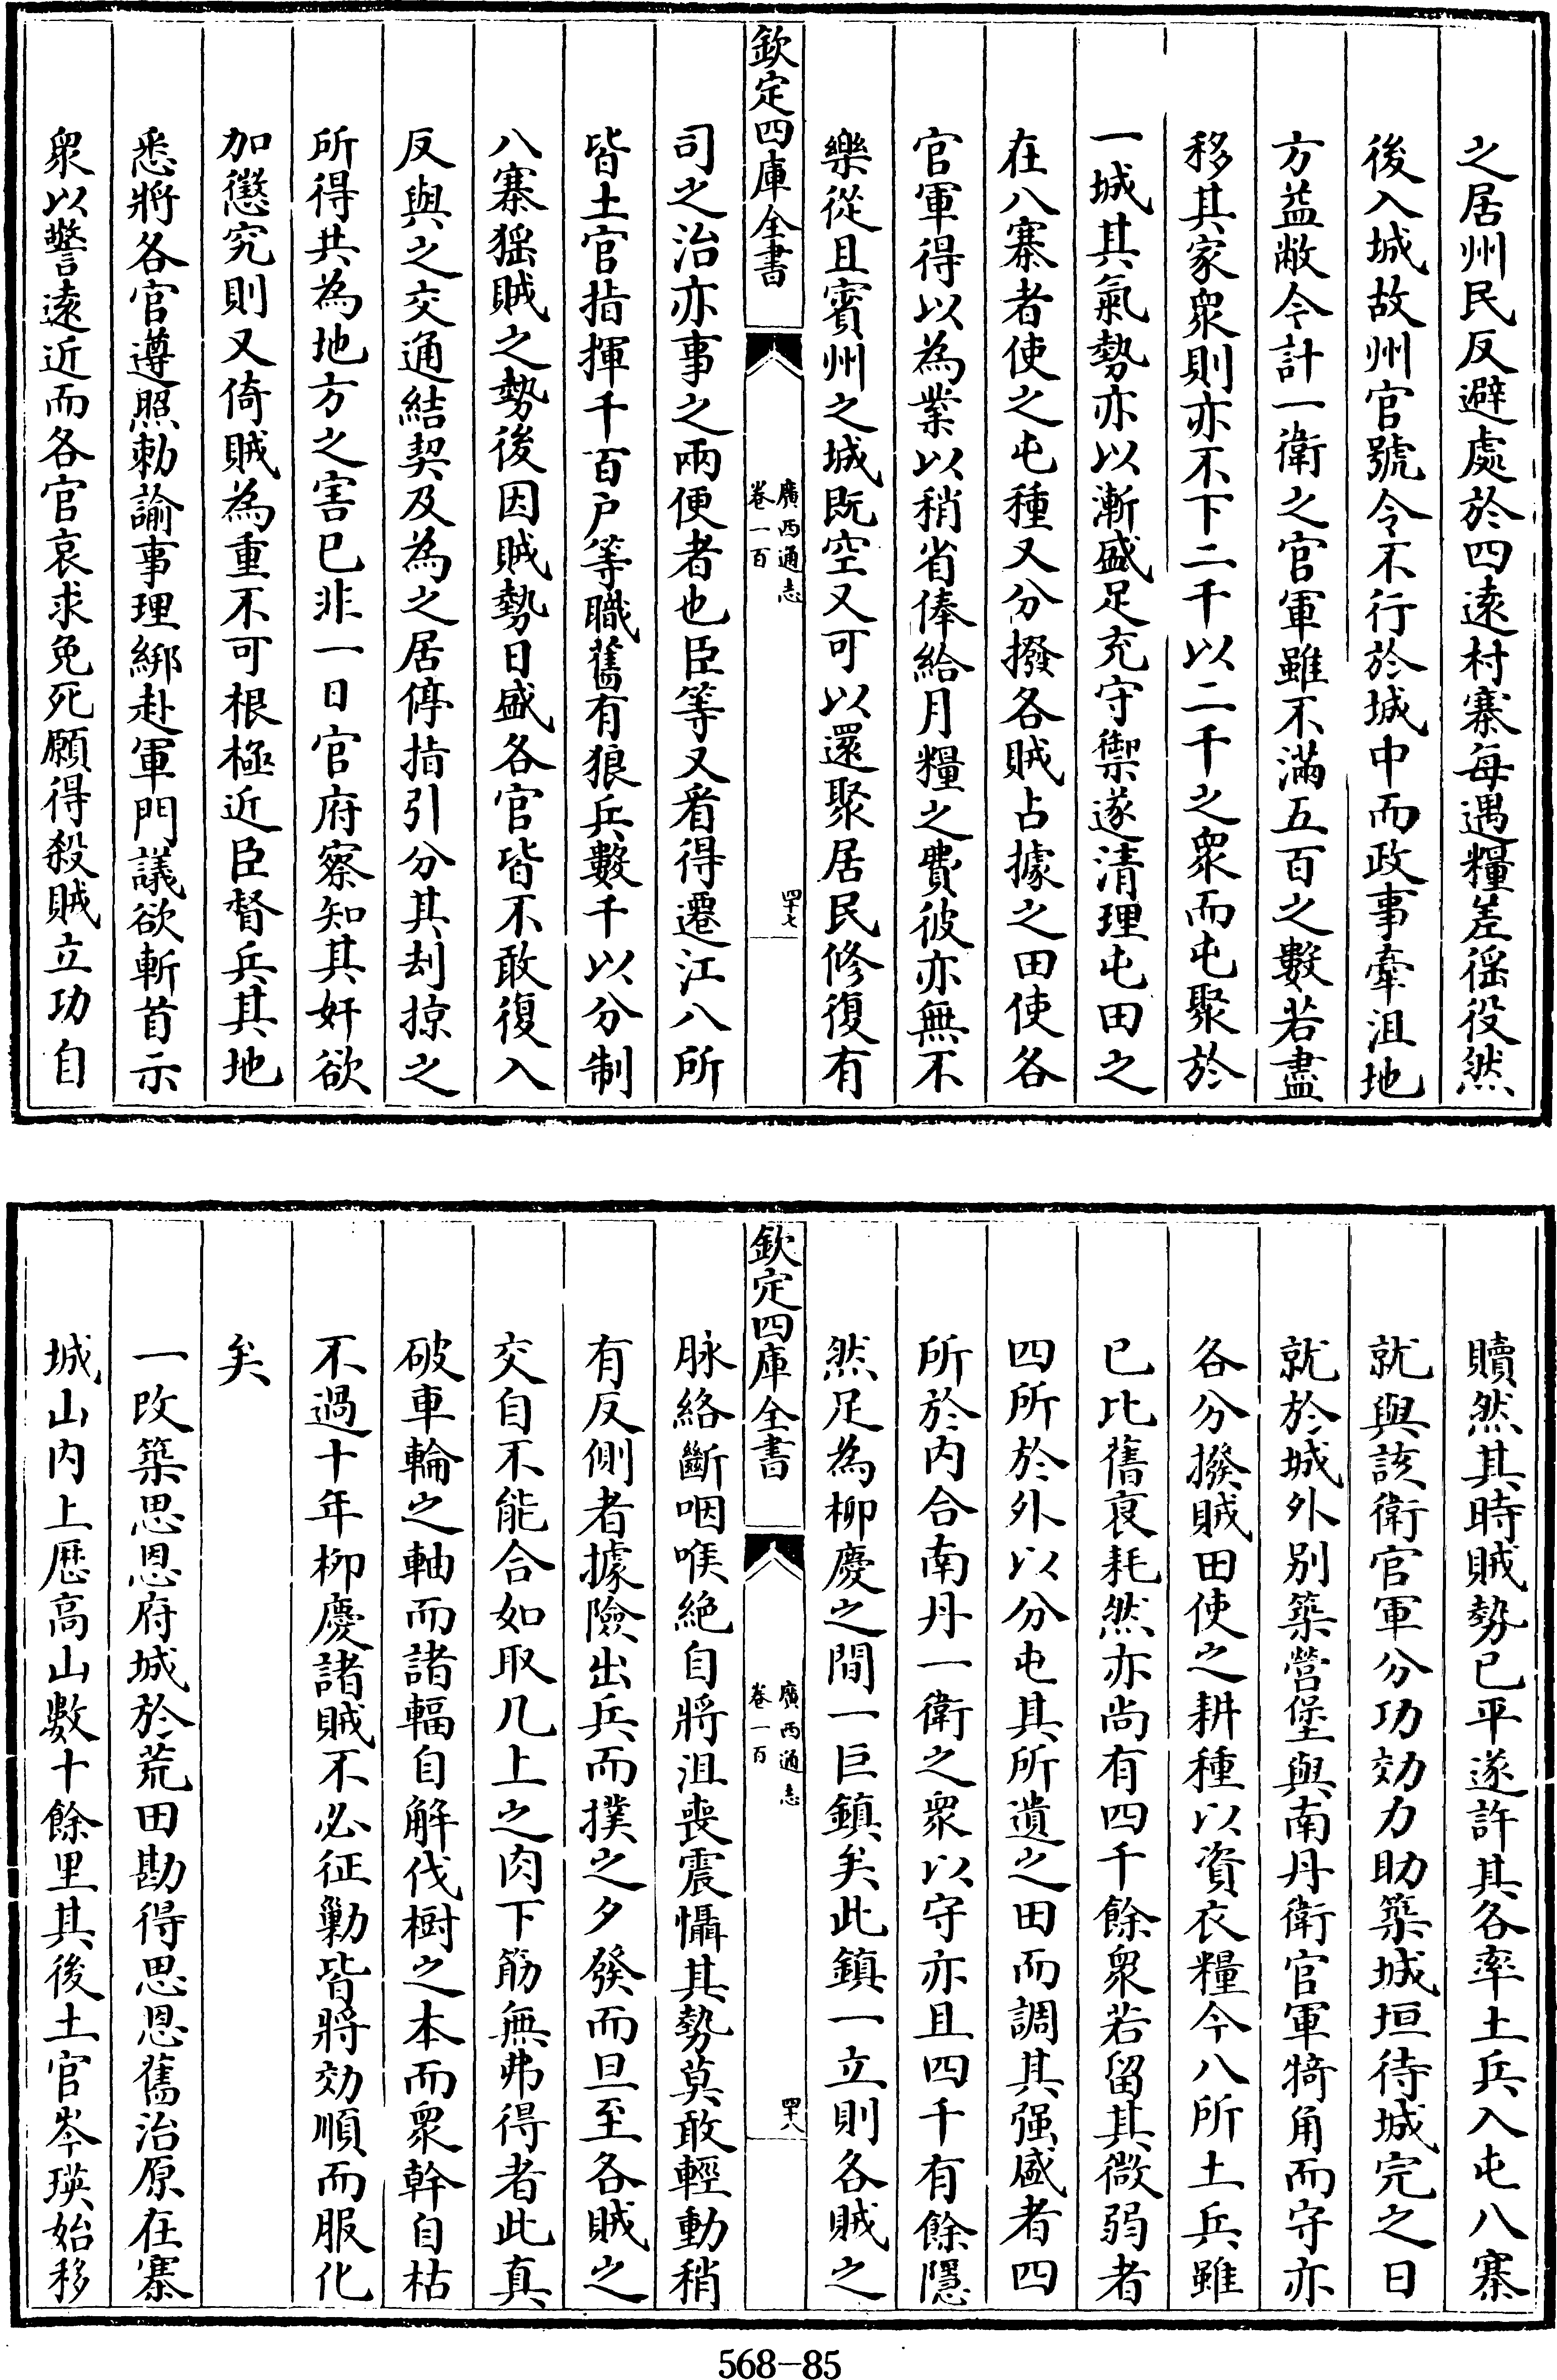 之居州民反避處於四遠村寨每遇糧差徭役然
後入城故州官號令不行於城中而政事牽沮地
方益敝今計一衛之官軍雖不滿五百之數若盡
移其家衆則亦不下二千以二千之衆而屯聚於
一城其氣勢亦以漸盛足充守禦遂清理屯田之
在八寨者使之屯種又分撥各賊占據之田使各
官軍得以為業以稍省俸給月糧之費彼亦無不
樂從且賓州之城既空又可以還聚居民修復有
欽定四庫全書
廣西通志
卷一百
四十七
司之治亦事之兩便者也臣等又看得遷江八所
皆土官指揮千百户等職舊有狼兵數千以分制
八寨猺賊之勢後因賊勢日盛各官皆不敢復入
反與之交通結契及為之居停指引分其刦掠之
所得共為地方之害已非一日官府察知其奸欲
加懲究則又倚賊為重不可根極近臣督兵其地
悉將各官遵照勅諭事理綁赴軍門議欲斬首示
衆以警遠近而各官哀求免死願得殺賊立功自
贖然其時賊勢已平遂許其各率土兵入屯八寨
就與該衛官軍分功効力助築城垣待城完之日
就於城外别築營堡與南丹衛官軍犄角而守亦
各分撥賊田使之耕種以資衣糧今八所土兵雖
已比舊衰耗然亦尚有四千餘衆若留其微弱者
四所於外以分屯其所遺之田而調其强盛者四
所於内合南丹一衛之衆以守亦且四千有餘隱
然足為柳慶之間一巨鎮矣此鎮一立則各賊之
欽定四庫全書
廣西通志
卷一百
四十八
脉絡斷咽喉絶自將沮喪震懾其勢莫敢輕動稍
有反側者據險出兵而撲之夕發而旦至各賊之
交自不能合如取几上之肉下筯無弗得者此真
破車輪之軸而諸輻自解伐樹之本而衆幹自枯
不過十年柳慶諸賊不必征勦皆將効順而服化
矣
一改築思恩府城於荒田勘得思恩舊治原在寨
城山内上歷高山數十餘里其後土官岑瑛始移
568-85